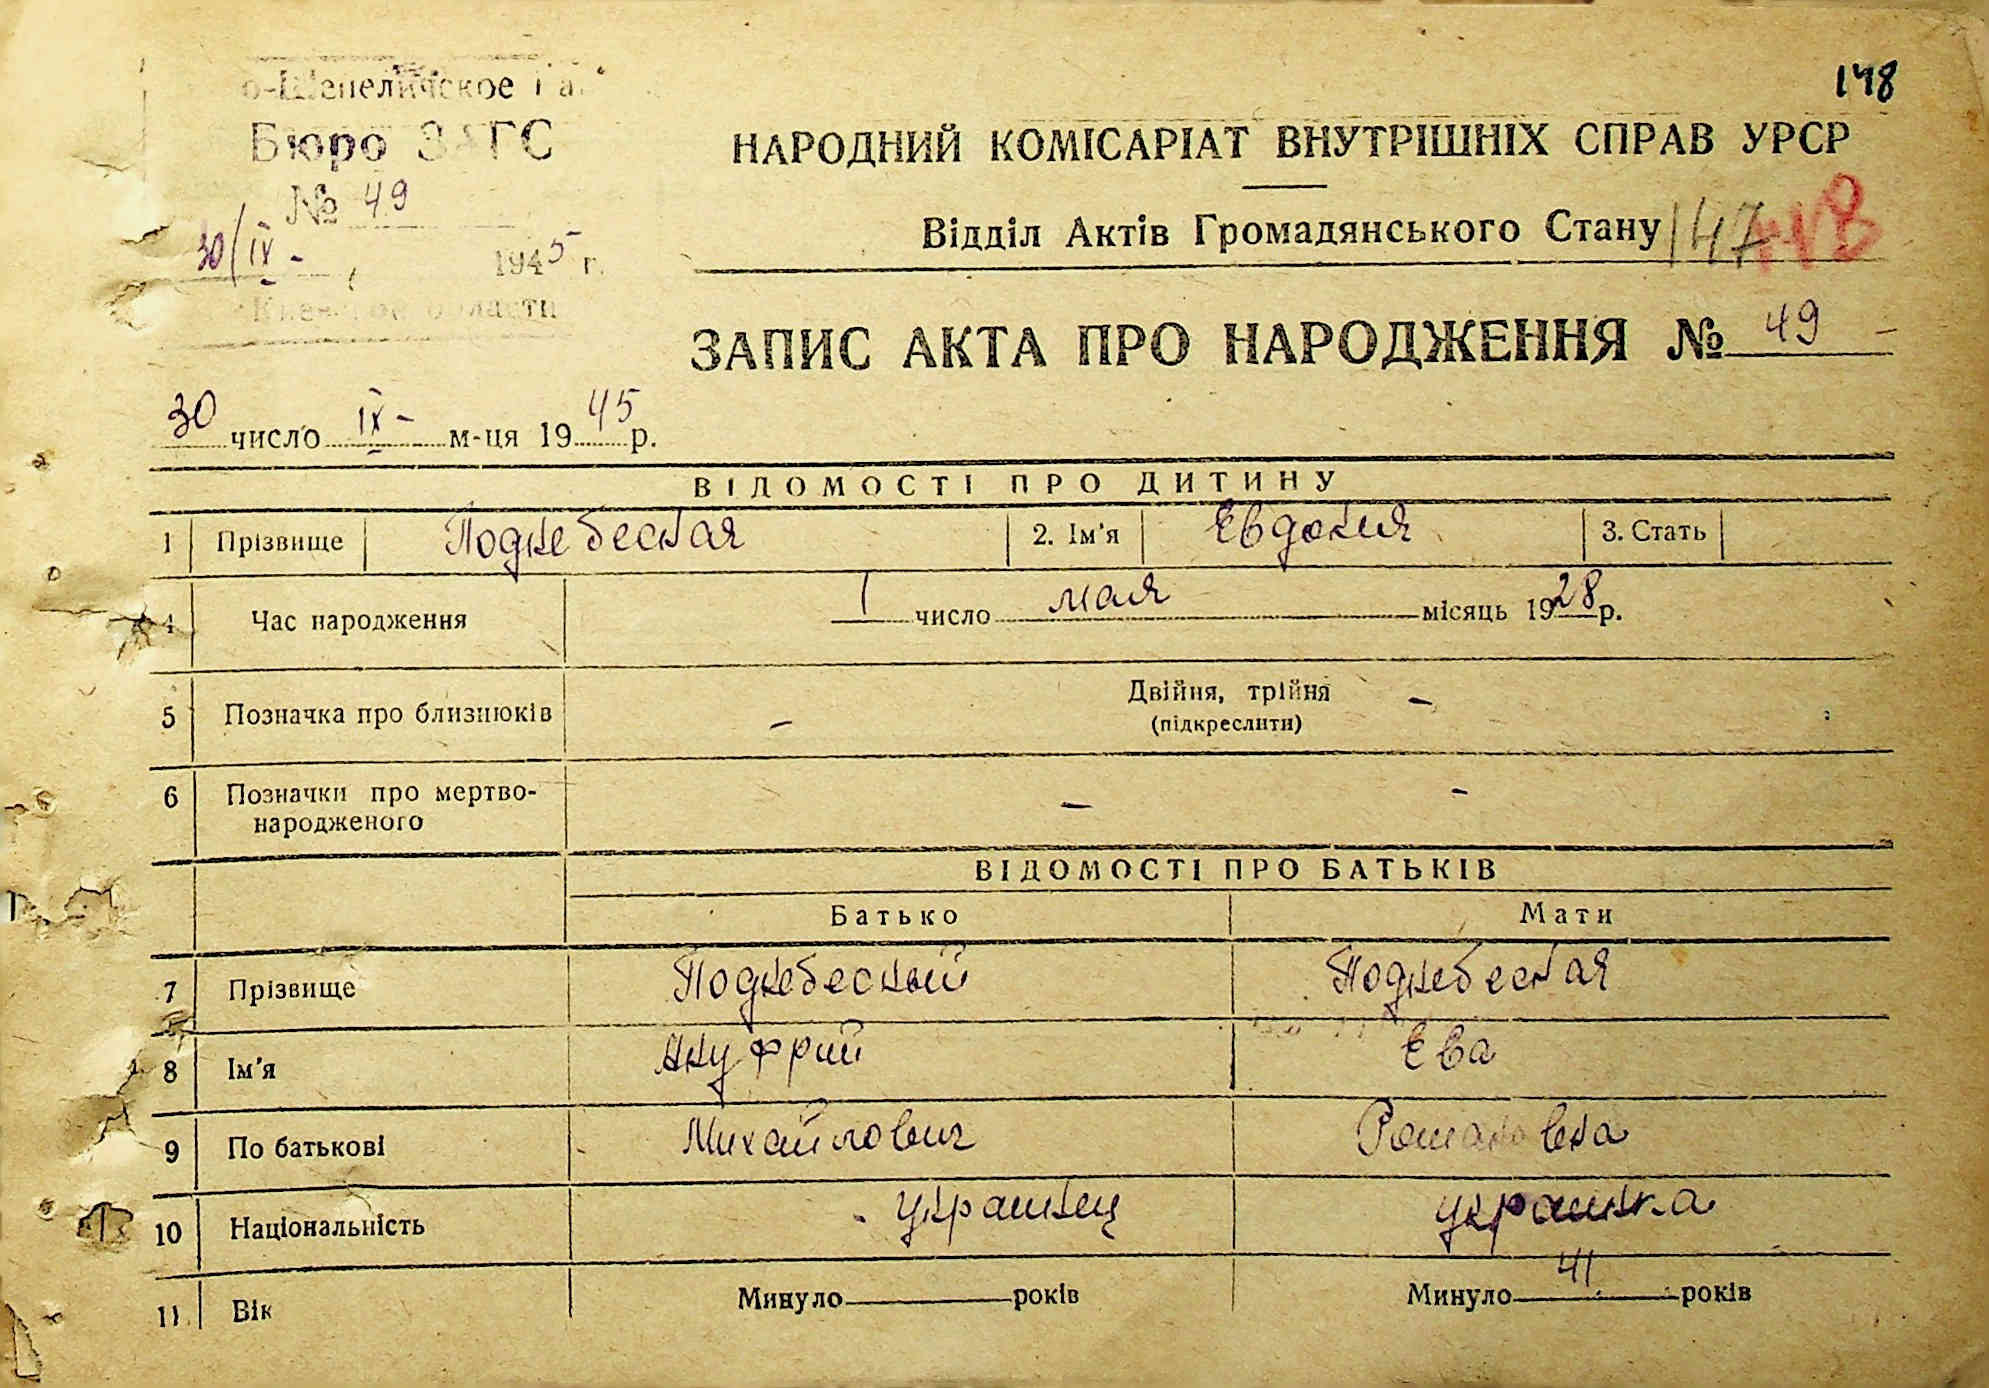 148
о-Шепеличское Ра
Бюро ЗАГС
№ 49
30/IX - 1945 г.
Киевской области
НАРОДНИЙ КОМІСАРІАТ ВНУТРІШНІХ СПРАВ УРСР
Відділ Актів Громадянського Стану 147 148
ЗАПИС АКТА ПРО НАРОДЖЕННЯ № 49 -
30 число IX - м-ця 1945 р.
ВІДОМОСТІ ПРО ДИТИНУ
1 Прізвище Поднебесная 2. Ім'я Евдокия 3. Стать
4 Час народження 1 число мая місяць 1928 р.
5 Позначка про близнюків - Двійня, трійня -
(підкреслити)
6 Позначки про мертво-
народженого - -
ВІДОМОСТІ ПРО БАТЬКІВ
Батько Мати
7 Прізвище Поднебесный Поднебесная
8 Ім'я Ануфрий Ева
9 По батькові Михайлович Романовна
10 Національність украинец украинка
11 Вік Минуло років Минуло 41 років